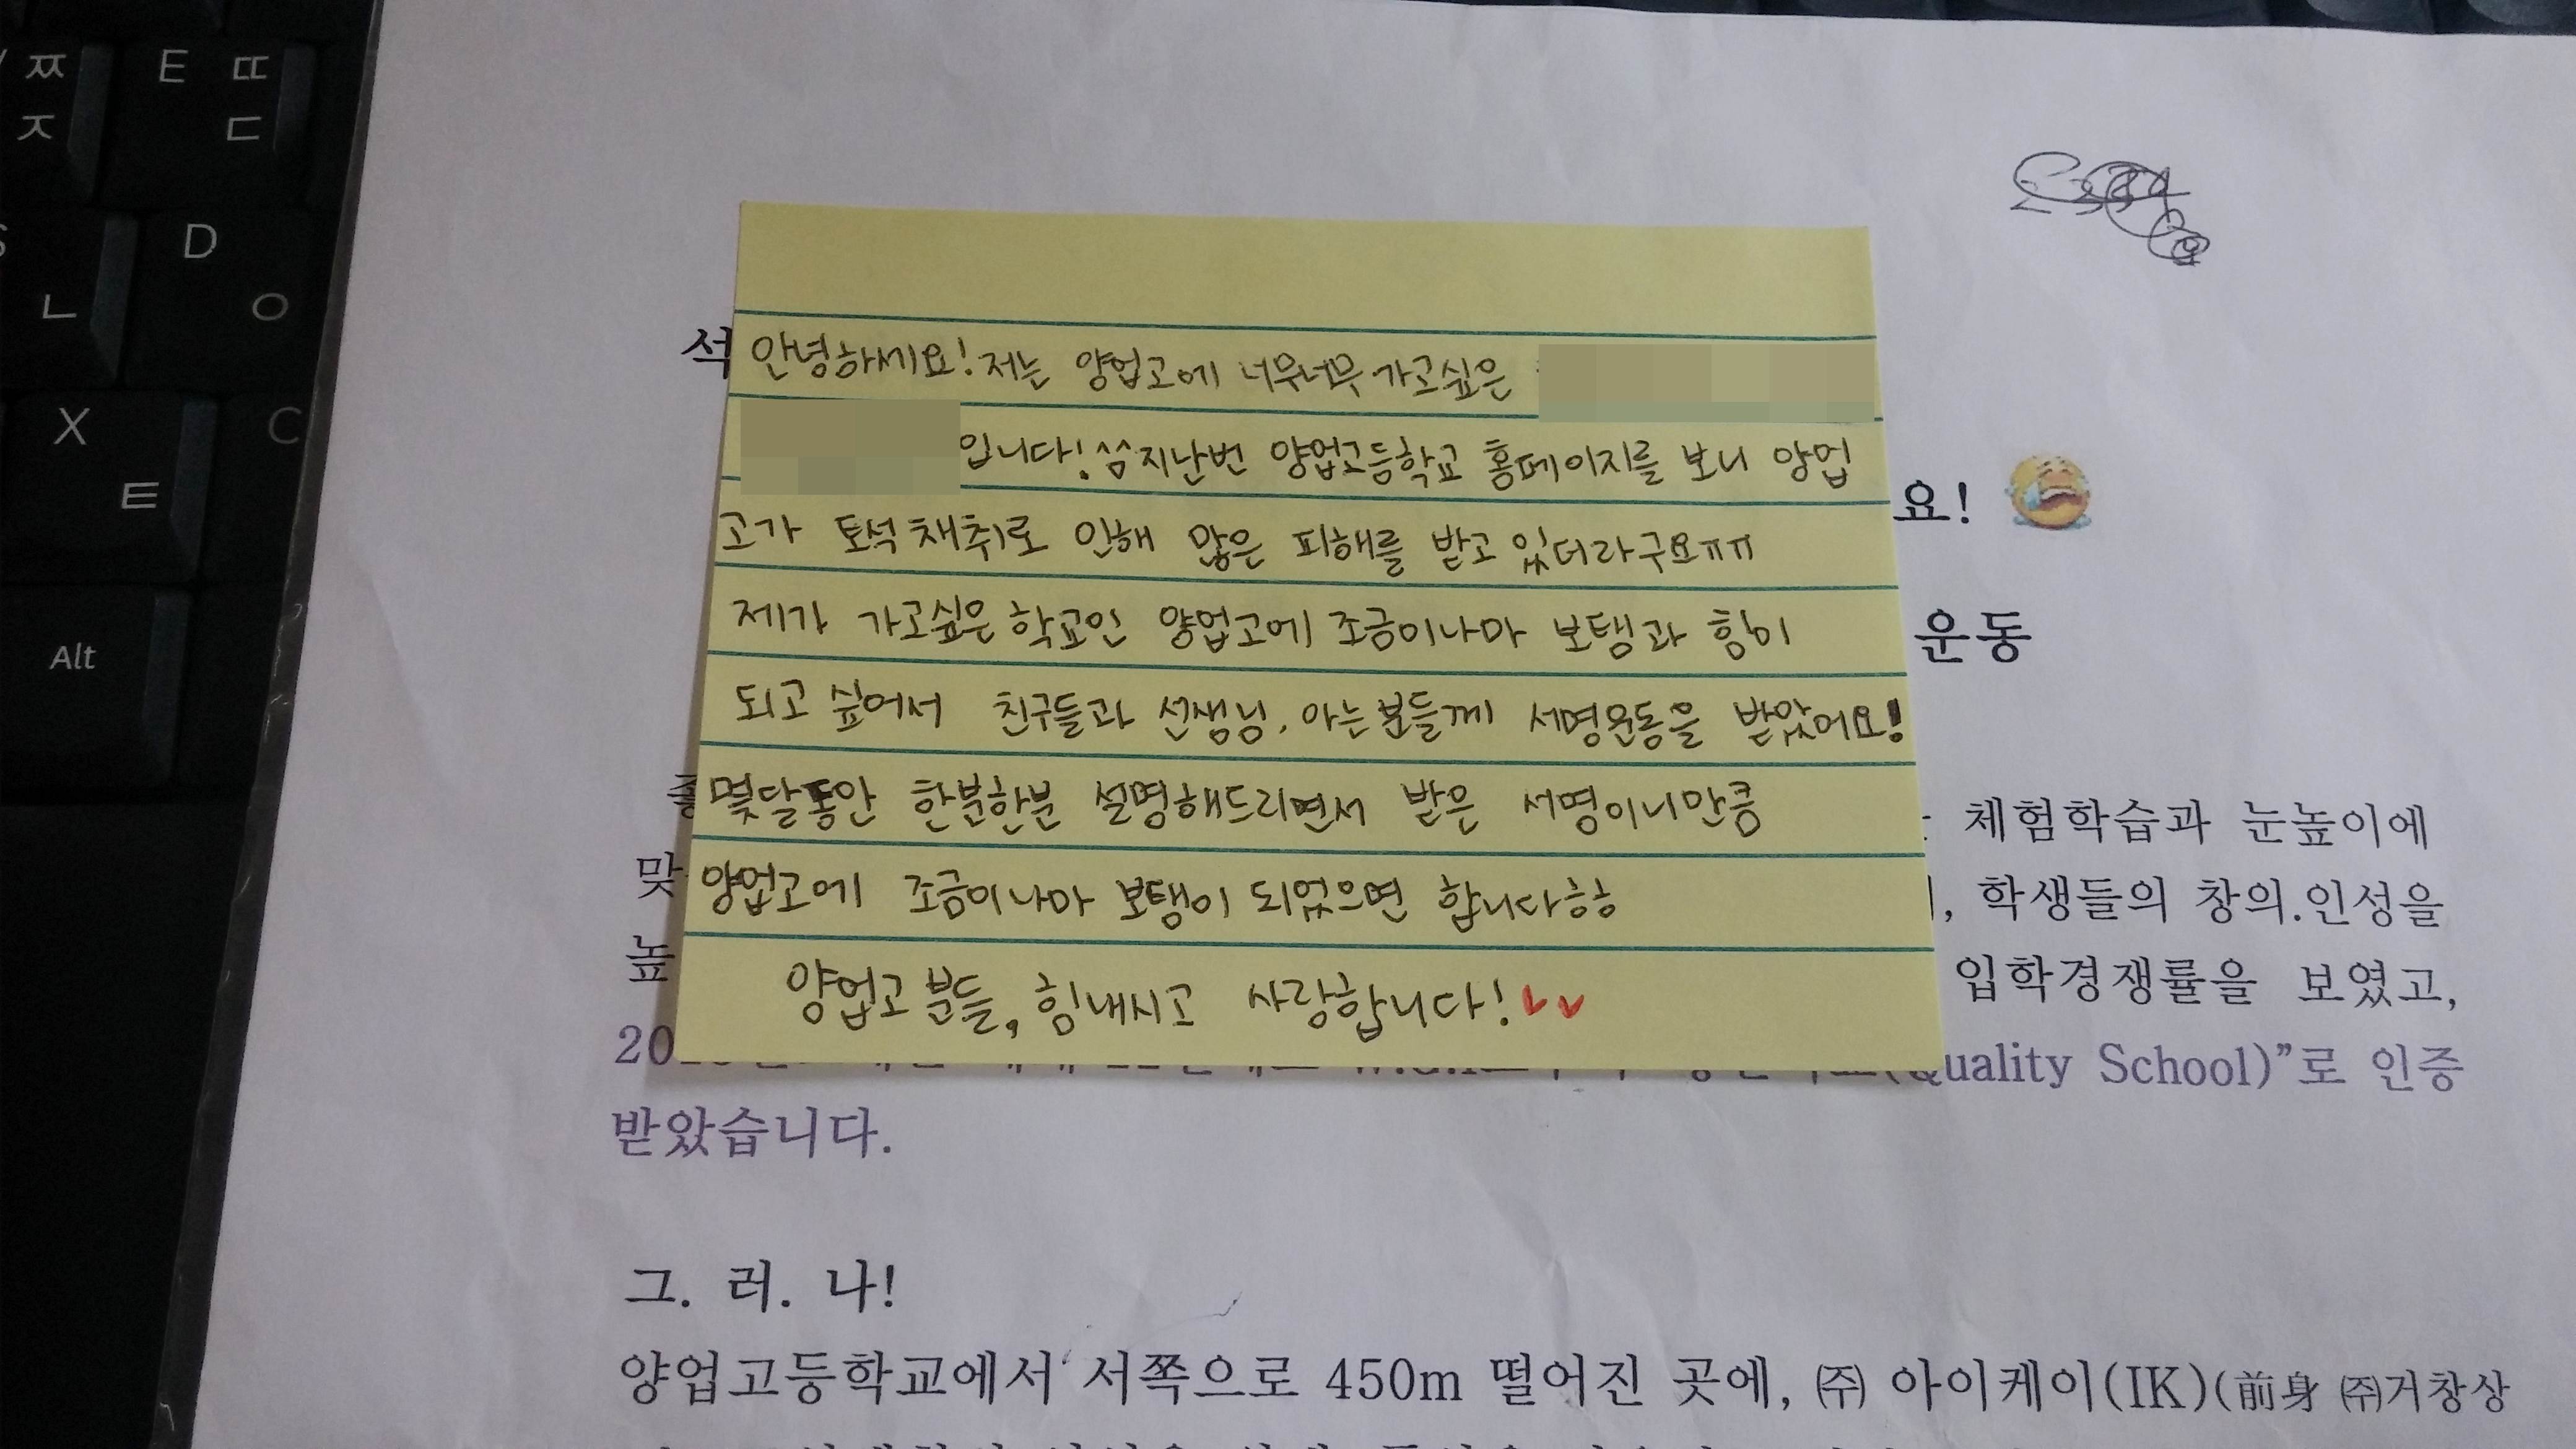 ㅉ E ㄸ
ㅈ ㄷ
D
ㄴ ㅇ
X C
ㅌ
Alt
안녕하세요! 저는 양업고에 너무너무 가고싶은
입니다! ^^ 지난번 양업고등학교 홈페이지를 보니 양업
고가 토석채취로 인해 많은 피해를 받고 있더라구요ㅠㅠ
제가 가고싶은 학교인 양업고에 조금이나마 보탬과 힘이
되고 싶어서 친구들과 선생님, 아는 분들께 서명운동을 받았어요!
몇달동안 한분한분 설명해드리면서 받은 서명이니만큼
양업고에 조금이나마 보탬이 되었으면 합니다ㅎㅎ
양업고 분들, 힘내시고 사랑합니다!
석
요!
운동
체험학습과 눈높이에
맞 학생들의 창의.인성을
높 입학경쟁률을 보였고,
20 uality School)”로 인증
받았습니다.
그. 러. 나!
양업고등학교에서 서쪽으로 450m 떨어진 곳에, ㈜ 아이케이(IK)(前身 ㈜거창상